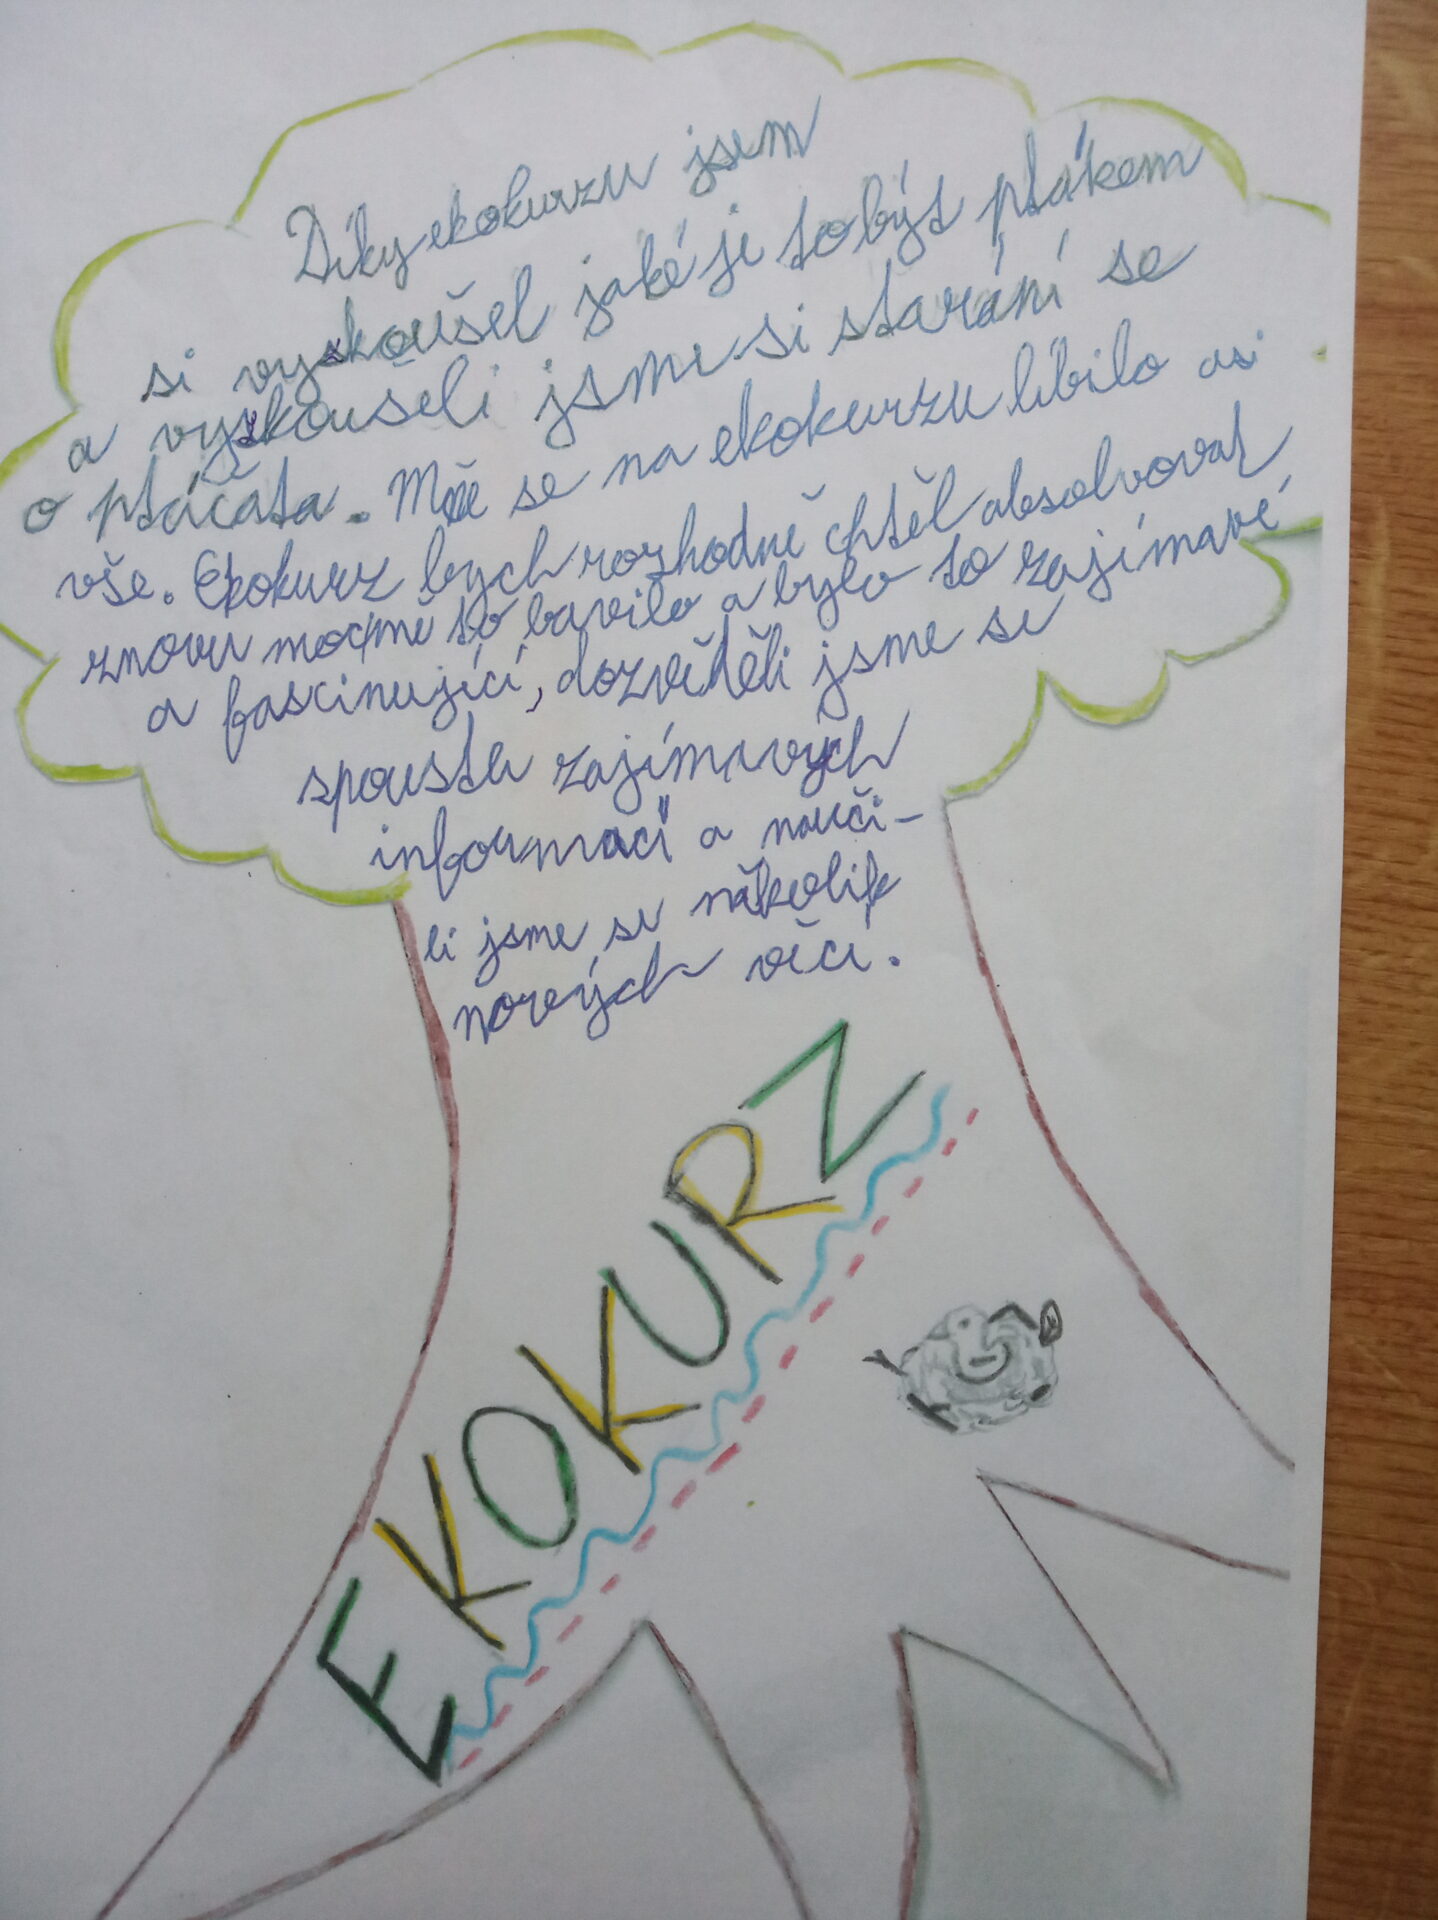 Díky ekokurzu jsem
si vyskoušel jaké je to být ptákem
a vyskoušeli jsme si starání se
o ptáčata. Mě se na ekokurzu líbilo asi
vše. Ekokurz bych rozhodně chtěl absolvovat
znovu moc mě to bavilo a bylo to zajímavé
a fascinující, dozvěděli jsme se
spousta zajímavých
informací a nauči-
li jsme se několik
nových věcí.
EKOKURZ